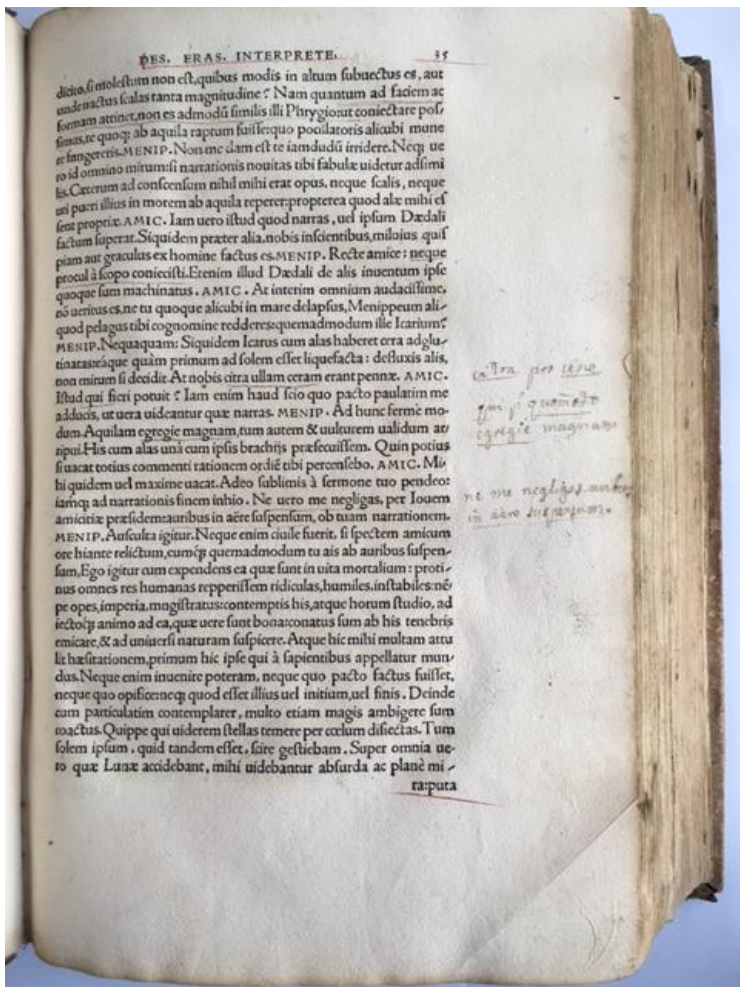 DES. ERAS. INTERPRETE. 35
dicito, si molestum non est, quibus modis in altum subuectus es, aut
unde nactus scalas tanta magnitudine? Nam quantum ad faciem ac
formam attinet, non es admodũ similis illi Phrygio: ut coniectare pos/
simus, te quoq; ab aquila raptum fuisse: quo pocillatoris alicubi mune
re fungereris. MENIP. Non me clam est te iamdudũ irridere. Neq; ue
ro id omnino mirum: si narrationis nouitas tibi fabulæ uidetur adsimi
lis. Cæterum ad conscensum nihil mihi erat opus, neque scalis, neque
uti pueri illius in morem ab aquila reperer: propterea quod alæ mihi es
sent propriæ. AMIC. Iam uero istud quod narras, uel ipsum Dædali
factum superat. Siquidem præter alia, nobis inscientibus, miluius quis
piam aut graculus ex homine factus es. MENIP. Recte amice: neque
procul à scopo coniecisti. Etenim illud Dædali de alis inuentum ipse
quoque sum machinatus. AMIC. At interim omnium audacissime,
nõ ueritus es, ne tu quoque alicubi in mare delapsus, Menippeum ali/
quod pelagus tibi cognomine redderes: quemadmodum ille Icarium?
MENIP. Nequaquam: Siquidem Icarus cum alas haberet cera adglu/
tinatas: eaque quàm primum ad solem esset liquefacta: defluxis alis,
non mirum si decidit. At nobis citra ullam ceram erant pennæ. AMIC.
Istud qui fieri potuit? Iam enim haud scio quo pacto paulatim me
adducis, ut uera uideantur quæ narras. MENIP. Ad hunc fermè mo/
dum. Aquilam egregie magnam, tum autem & uulturem ualidum ar/
ripui. His cum alas unà cum ipsis brachijs præsecuissem. Quin potius
si uacat totius commenti rationem ordiẽ tibi percensebo. AMIC. Mi/
hi quidem uel maxime uacat. Adeo sublimis à sermone tuo pendeo:
iamq; ad narrationis finem inhio. Ne uero me negligas, per Iouem
amicitiæ præsidem: auribus in aëre suspensum, ob tuam narrationem.
MENIP. Ausculta igitur. Neque enim ciuile fuerit, si spectem amicum
ore hiante relictum, cumq; quemadmodum tu ais ab auribus suspen/
sum, Ego igitur cum expendens ea quæ sunt in uita mortalium: proti/
nus omnes res humanas repperissem ridiculas, humiles, instabiles: nẽ/
pe opes, imperia, magistratus: contemptis his, atque horum studio, ad
iectoq; animo ad ea, quæ uere sunt bona: conatus sum ab his tenebris
emicare, & ad uniuersi naturam suspicere. Atque hic mihi multam attu
lit hæsitationem, primum hic ipse qui à sapientibus appellatur mun/
dus. Neque enim inuenire poteram, neque quo pacto factus fuisset,
neque quo opifice: neq; quod esset illius uel initium, uel finis. Deinde
cum particulatim contemplarer, multo etiam magis ambigere sum
coactus. Quippe qui uiderem stellas temere per cœlum disiectas. Tum
solem ipsum, quid tandem esset, scire gestiebam. Super omnia ue/
ro quæ Lunæ accidebant, mihi uidebantur absurda ac planè mi/
ra: puta
citra pro sine
qui p quomodo
egregie magnam
ne me negligas auribus
in aere suspensum.